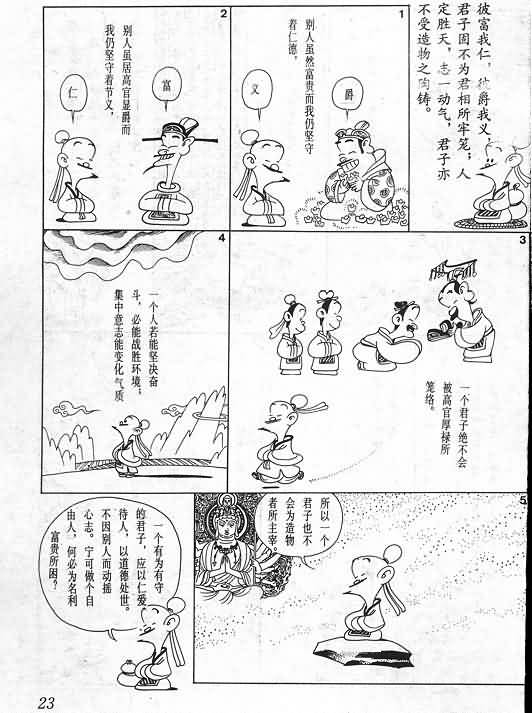 彼富我仁，彼爵我义，
君子固不为君相所牢笼；人
定胜天，志一动气，君子亦
不受造物之陶铸。
1
别人虽然富贵而我仍坚守
着仁德，
爵
义
2
别人虽居高官显爵而
我仍坚守着节义，
富
仁
3
一个君子绝不会
被高官厚禄所
笼络。
4
一个人若能坚决奋
斗，必能战胜环境；
集中意志能变化气质
5
所以一个
君子也不
会为造物
者所主宰。
一个有为有守
的君子，应以仁爱
待人，以道德处世。
不因别人而动摇
心志。宁可做个自
由人，何必为名利
富贵所困？
23